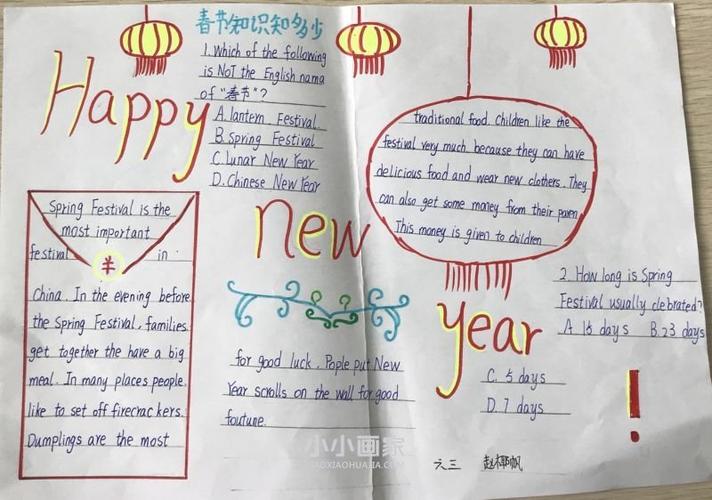 春节知识知多少
1. Which of the following
is NoT the English nama
of "春节"?
A. lantern Festival
B. Spring Festival
C. Lunar New Year
D. Chinese New Year
Happy
new
year
!
Spring Festival is the
most important
festival ¥ in
China. In the evening before
the Spring Festival, families
get together the have a big
meal. In many places people
like to set off firecrackers.
Dumplings are the most
traditional food. Children like the
festival very much because they can have
delicious food and wear new clothers. They
can also get some money from their paren
This money is given to children
for good luck. Pople put New
Year scrolls on the wall for good
foutune.
2. How long is Spring
Festival usually clebrated?
A. 18 days B. 23 days
C. 5 days
D. 7 days
小小画家
XIAOXIAOHUAJIA.COM